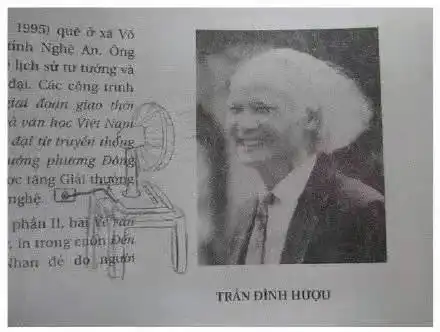 1995) quê ở xã Võ
tỉnh Nghệ An. Ông
lịch sử tư tưởng và
đại. Các công trình
giai đoạn giao thời
và văn học Việt Nam
đại từ truyền thống
hướng phương Đông
ợc tặng Giải thưởng
nghệ.
phần II, bài Về
, in trong cuốn Đến
Nhan đề do người
TRẦN ĐÌNH HƯỢU